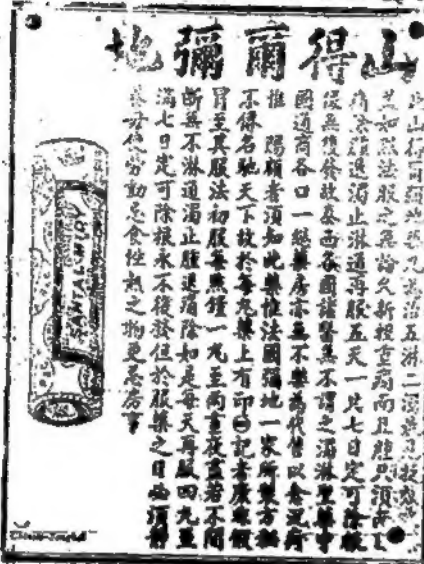 山得爾彌地
此山得爾彌地藥凡五淋二濁
照法服之無論久新極重病而且只須
痛除退濁止淋通再服五天一共七日定可除
後無發故泰西各國諸醫無不謂之濁淋聖藥中
國通商各口一總藥房亦無不樂為代售以
惟 賜顧者須知此藥惟法國彌地一家所製方
不得名馳天下故於每丸藥上有印記者庶無假
冒至其服法初服每點鐘一丸至兩晝夜若不間
斷無不淋通濁止腫退痛除如是每天再服四丸至
滿七日定可除根永不復發但於服藥之日必須靜
養勿使勞動忌食性熱之物更忌房事
SANTAL-MIDY